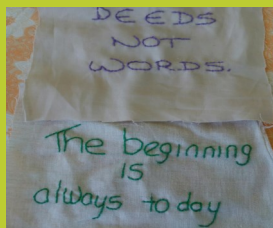 DEEDS
NOT
WORDS.
The beginning
is
always today